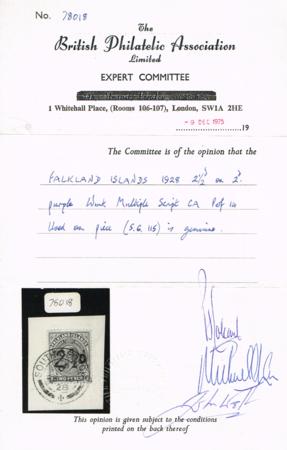 No. 78018
The
British Philatelic Association
Limited
EXPERT COMMITTEE
1 Whitehall Place, (Rooms 106-107), London, SW1A 2HE
- 9 DEC 1975 19
The Committee is of the opinion that the
FALKLAND ISLANDS 1928 2½d on 2d
purple Wmk Multiple Script CA Perf 14
Used on piece (S.G. 115) is genuine.
78018
SOUTH
2½D
TWO PENCE
28
This opinion is given subject to the conditions
printed on the back thereof